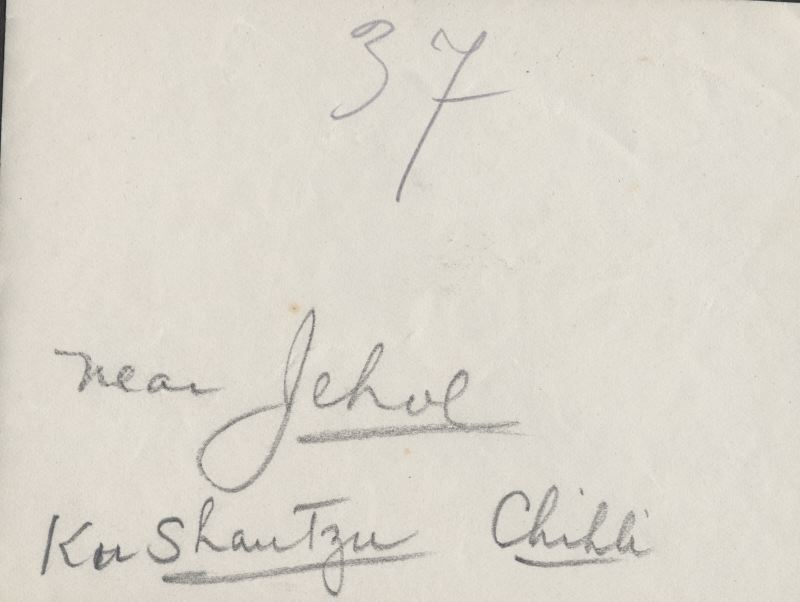 37
near Jehol
Ku Shan Tzu Chihli